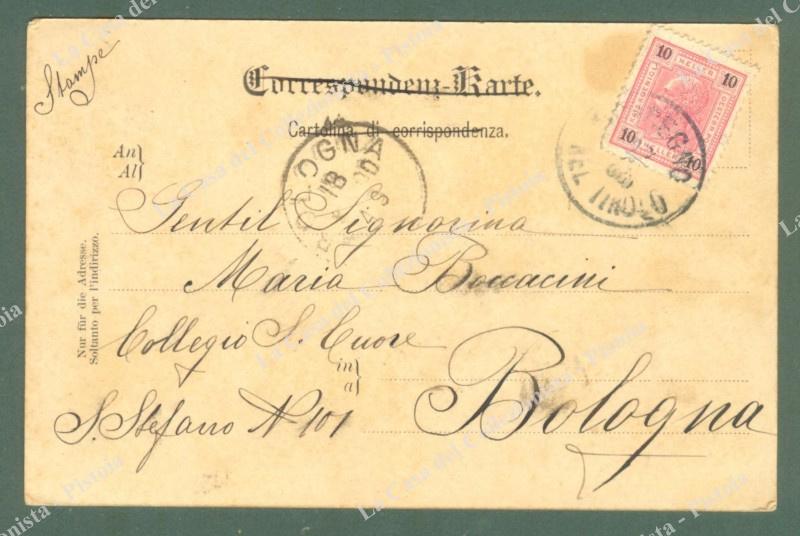 Stampe
Correspondenz-Karte.
Cartolina di corrispondenza.
An
Al
BOLOGNA
18
DEL TIROLO
10 HELLER 10
10 10
Nur für die Adresse.
Soltanto per l'indirizzo.
Gentil Signorina
Maria Boccacini
Collegio S. Cuore
in
a
S. Stefano N 101
Bologna
La Casa del Collezionista - Pistoia